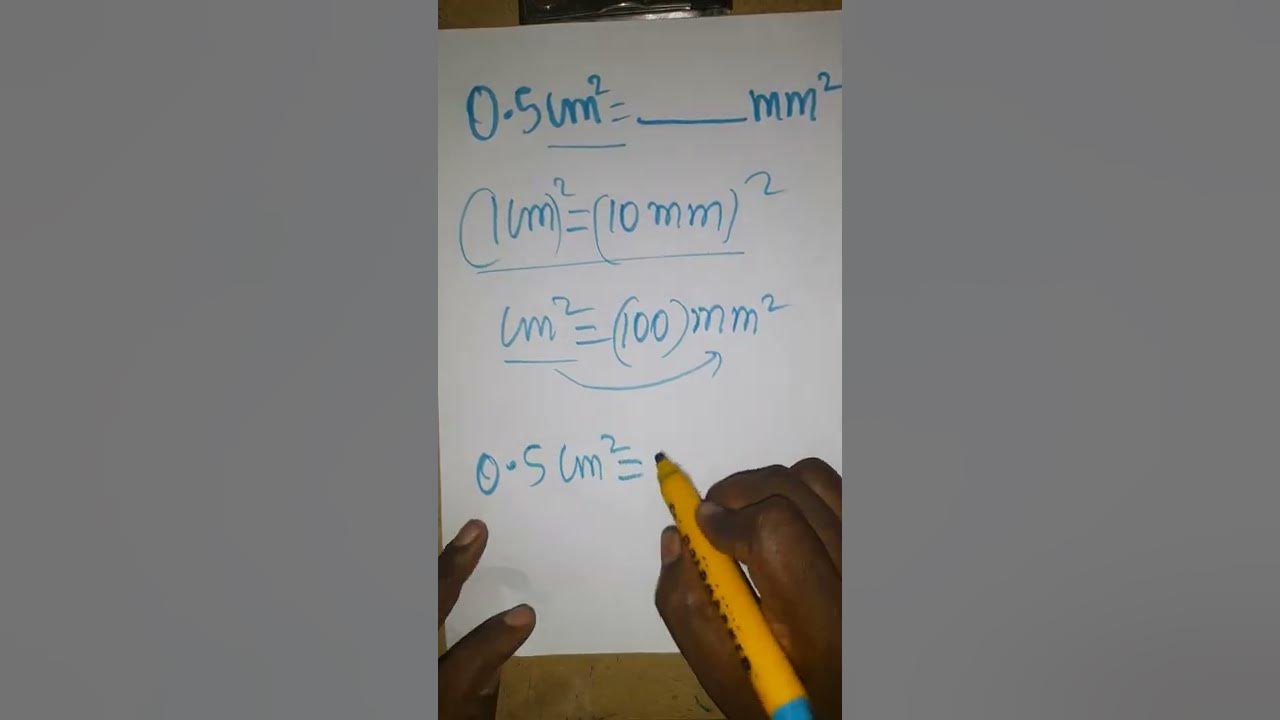 0.5cm²=____mm²
(1cm)²=(10mm)²
cm²=(100)mm²
0.5cm²=